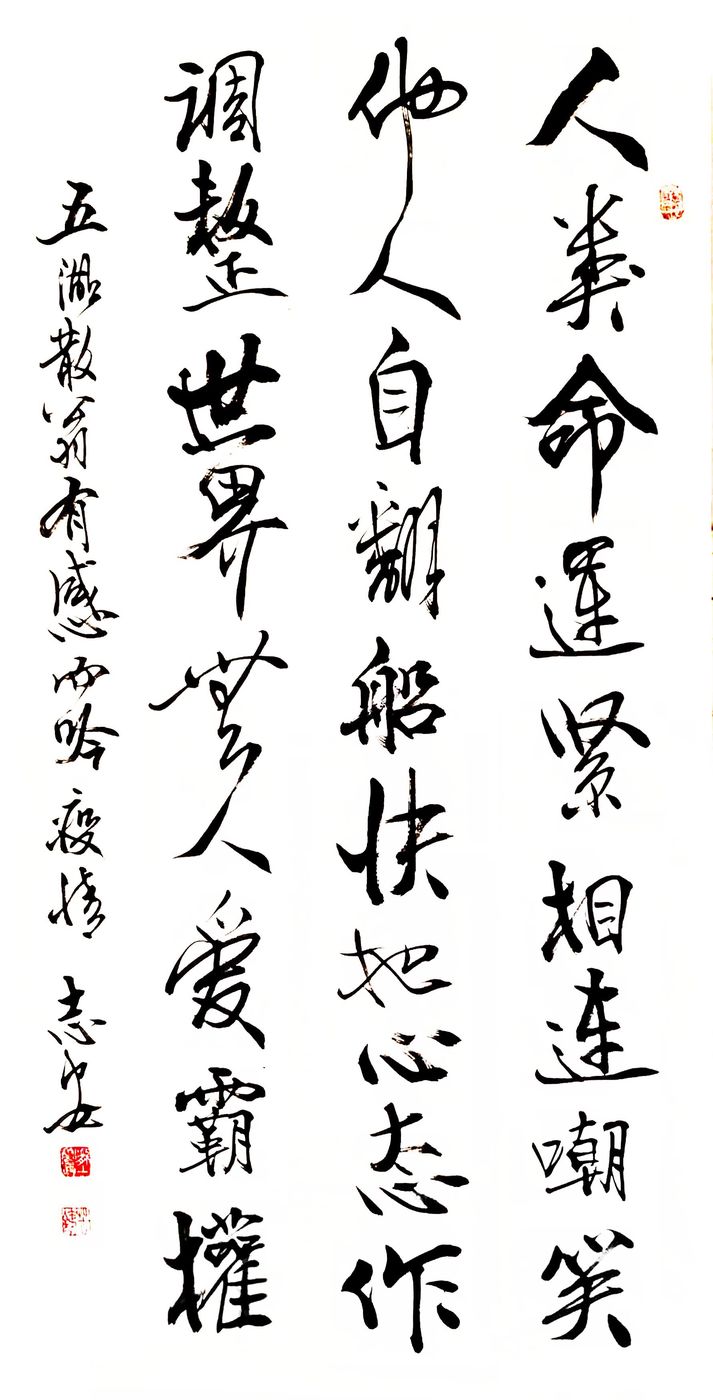 人类命运紧相连嘲笑
他人自翻船快把心态作
调整世界無人爱霸權
五湖散翁有感而吟疫情 志